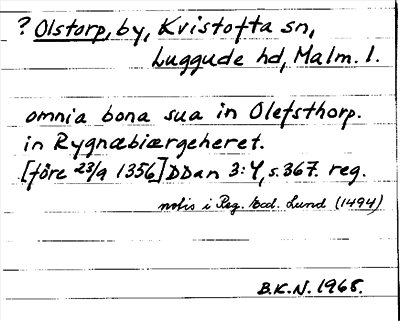 ? Olstorp, by, Kvistofta sn,
Luggude hd, Malm. l.
omnia bona sua in Olefsthorp.
in Rygnæbiærgeheret.
[före 23/9 1356] DDan 3:4, s. 367. reg.
notis i Reg. Ecd. Lund (1494)
B.K.N. 1968.